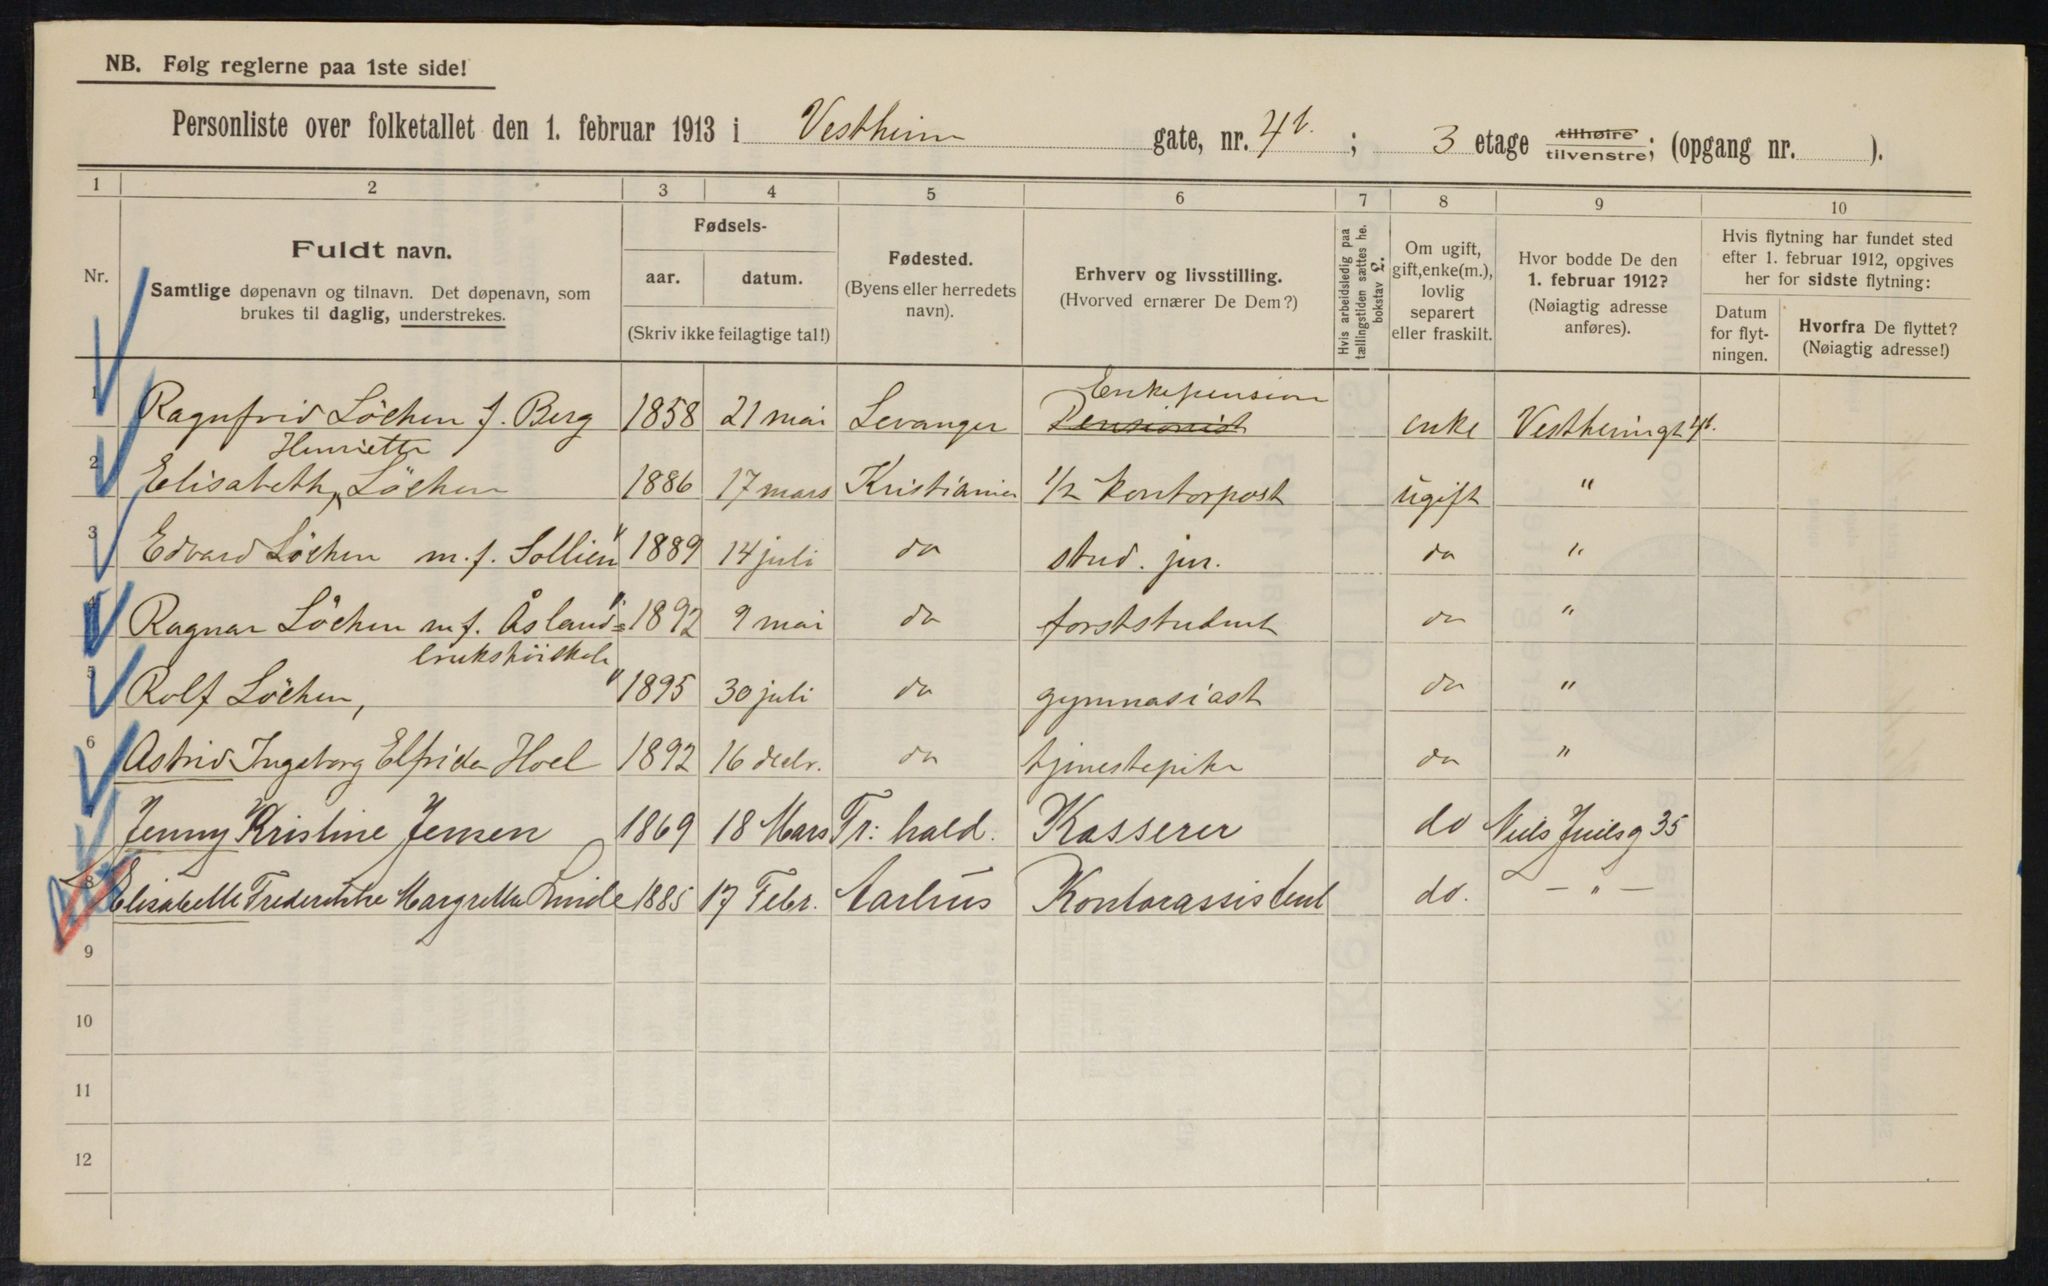 NB. Følg reglerne paa 1ste side!
Personliste over folketallet den 1. februar 1913 i Vestheim gate, nr. 4b. ; 3 etage tilhøire tilvenstre; (opgang nr. ).
1 2 3 4 5 6 7 8 9 10
Nr.
Fuldt navn.
Samtlige døpenavn og tilnavn. Det døpenavn, som
brukes til daglig, understrekes.
Fødsels-
aar. datum.
(Skriv ikke feilagtige tal!)
Fødested.
(Byens eller herredets
navn).
Erhverv og livsstilling.
(Hvorved ernærer De Dem?)
Hvis arbeidsledig paa
tællingstiden sættes he.
bokstav L.
Om ugift,
gift, enke(m.),
lovlig
separert
eller fraskilt.
Hvor bodde De den
1. februar 1912?
(Nøiagtig adresse
anføres).
Hvis flytning har fundet sted
efter 1. februar 1912, opgives
her for sidste flytning:
Datum
for flyt-
ningen.
Hvorfra De flyttet?
(Nøiagtig adresse!)
Enkepension
1 Ragnfrid Löchen f. Berg 1858 21 mai Levanger Pensionist enke Vestheimgt 4b.
Henriette
2 Elisabeth Löchen 1886 17 mars Kristiania 1/2 kontorpost ugift "
3 Edvard Löchen m.f. Sollien " 1889 14 juli do stud. jur. do "
4 Ragnar Löchen m.f. Ås land= " 1892 9 mai do forststudent do "
brukshöiskole
5 Rolf Löchen, " 1895 30 juli do gymnasiast do "
6 Astrid Ingeborg Elfrida Hoel 1892 16 decbr. do tjenestepike do "
7 Jenny Kristine Jensen 1869 18 Mars Fr: hald. Kasserer do Niels Juelsg 35
8 Elisabeth Frederikke Margrethe Linde 1885 17 Febr. Aarhus Kontorassistent do. — " —
9
10
11
12